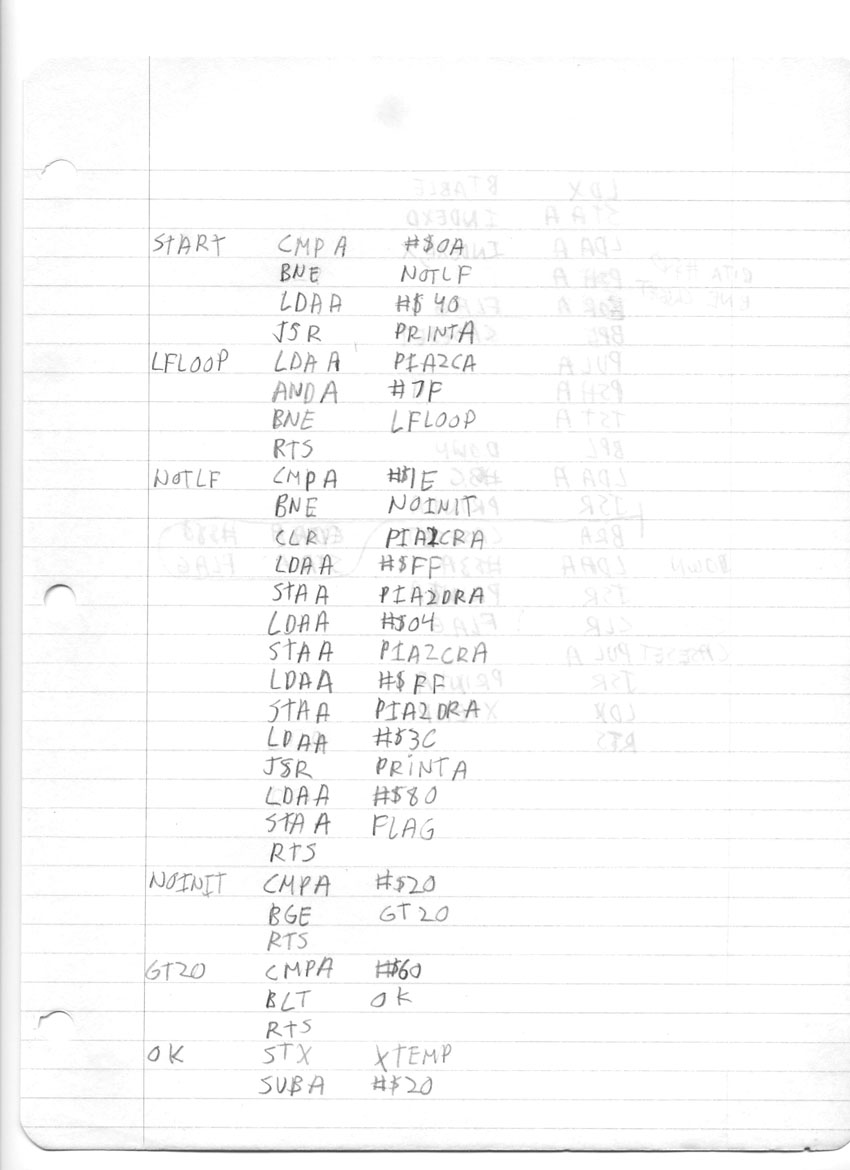 START CMPA #$0A
BNE NOTLF
LDAA #$40
JSR PRINTA
LFLOOP LDAA PIA2CA
ANDA #7F
BNE LFLOOP
RTS
NOTLF CMPA #$1E
BNE NOINIT
CLRA PIA2CRA
LDAA #$FF
STAA PIA2DRA
LDAA #$04
STAA PIA2CRA
LDAA #$FF
STAA PIA2DRA
LDAA #$3C
JSR PRINTA
LDAA #$80
STAA FLAG
RTS
NOINIT CMPA #$20
BGE GT20
RTS
GT20 CMPA #$60
BLT OK
RTS
OK STX XTEMP
SUBA #$20